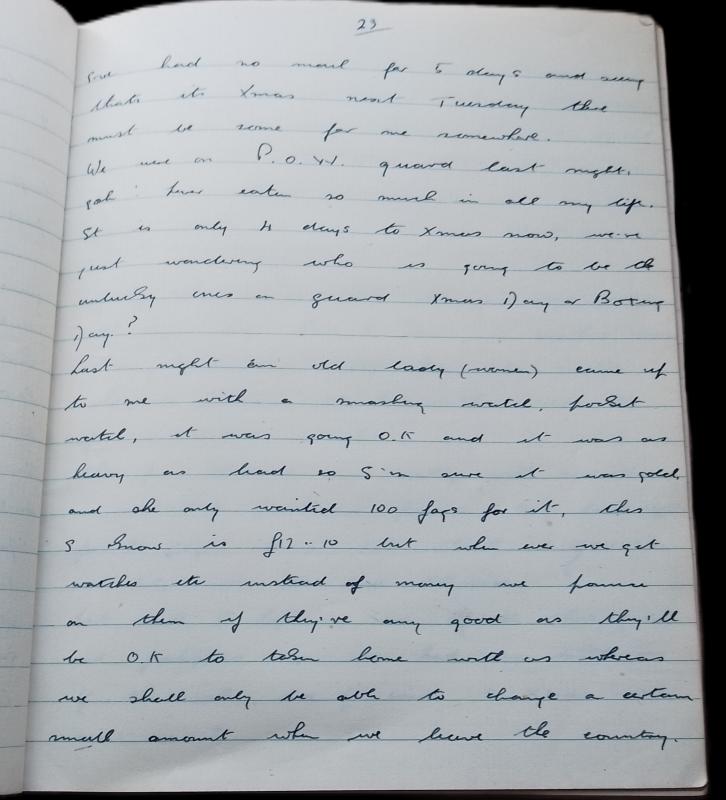 23
I've had no mail for 5 days and seeing
thats its Xmas next Tuesday there
must be some for me somewhere.
We were on P.O.W. guard last night,
gah! never eaten so much in all my life.
It is only 4 days to Xmas now, we're
just wondering who is going to be the
unlucky ones on guard Xmas Day or Boxing
Day.?
Last night an old lady (women) came up
to me with a smashing watch, pocket
watch, it was going O.K and it was as
heavy as lead so I'm sure it was gold,
and she only wanted 100 fags for it, this
I know is £12..10 but when ever we get
watches etc instead of money we pounce
on them if they've any good as they'll
be O.K to taken home with us whereas
we shall only be able to change a certain
small amount when we leave the country.